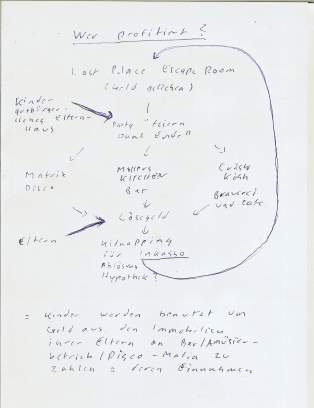 Wer profitiert?
Lost Place Escape Room
(Geld geliehen)
Kinder
gutbürger-
liches Eltern-
Haus
Party "feiern
samt Ende"
Matrix
Disco
Müllers
Kirchen
Bar
Köhn
Brauerei
und Cafe
Lösegeld
Eltern
Kidnapping
für Inkasso
Ablösung
Hypothek?
= Kinder werden benutzt um
Geld aus den Immobilien
ihrer Eltern an Bar/Amüsier-
betrieb/Disco-Mafia zu
zahlen = deren Einnahmen